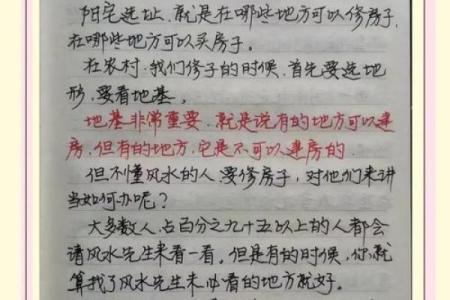 阳宅选址、就是在哪些地方可以修房子,
在哪些地方可以买房子.
在农村.我们修子的时候.首先要选地
形,要看地基.
地基非常重要.就是说有的地方可以建
房.但有的地方.它是不可以建房的.
但不懂风水的人.要修房子,对他们来讲
当如何办呢?
大多数人.占百分之九十五以上的人都会
请风水先生来看一看.但是有的时候,你就
算找了风水先生未必看的地方就好.